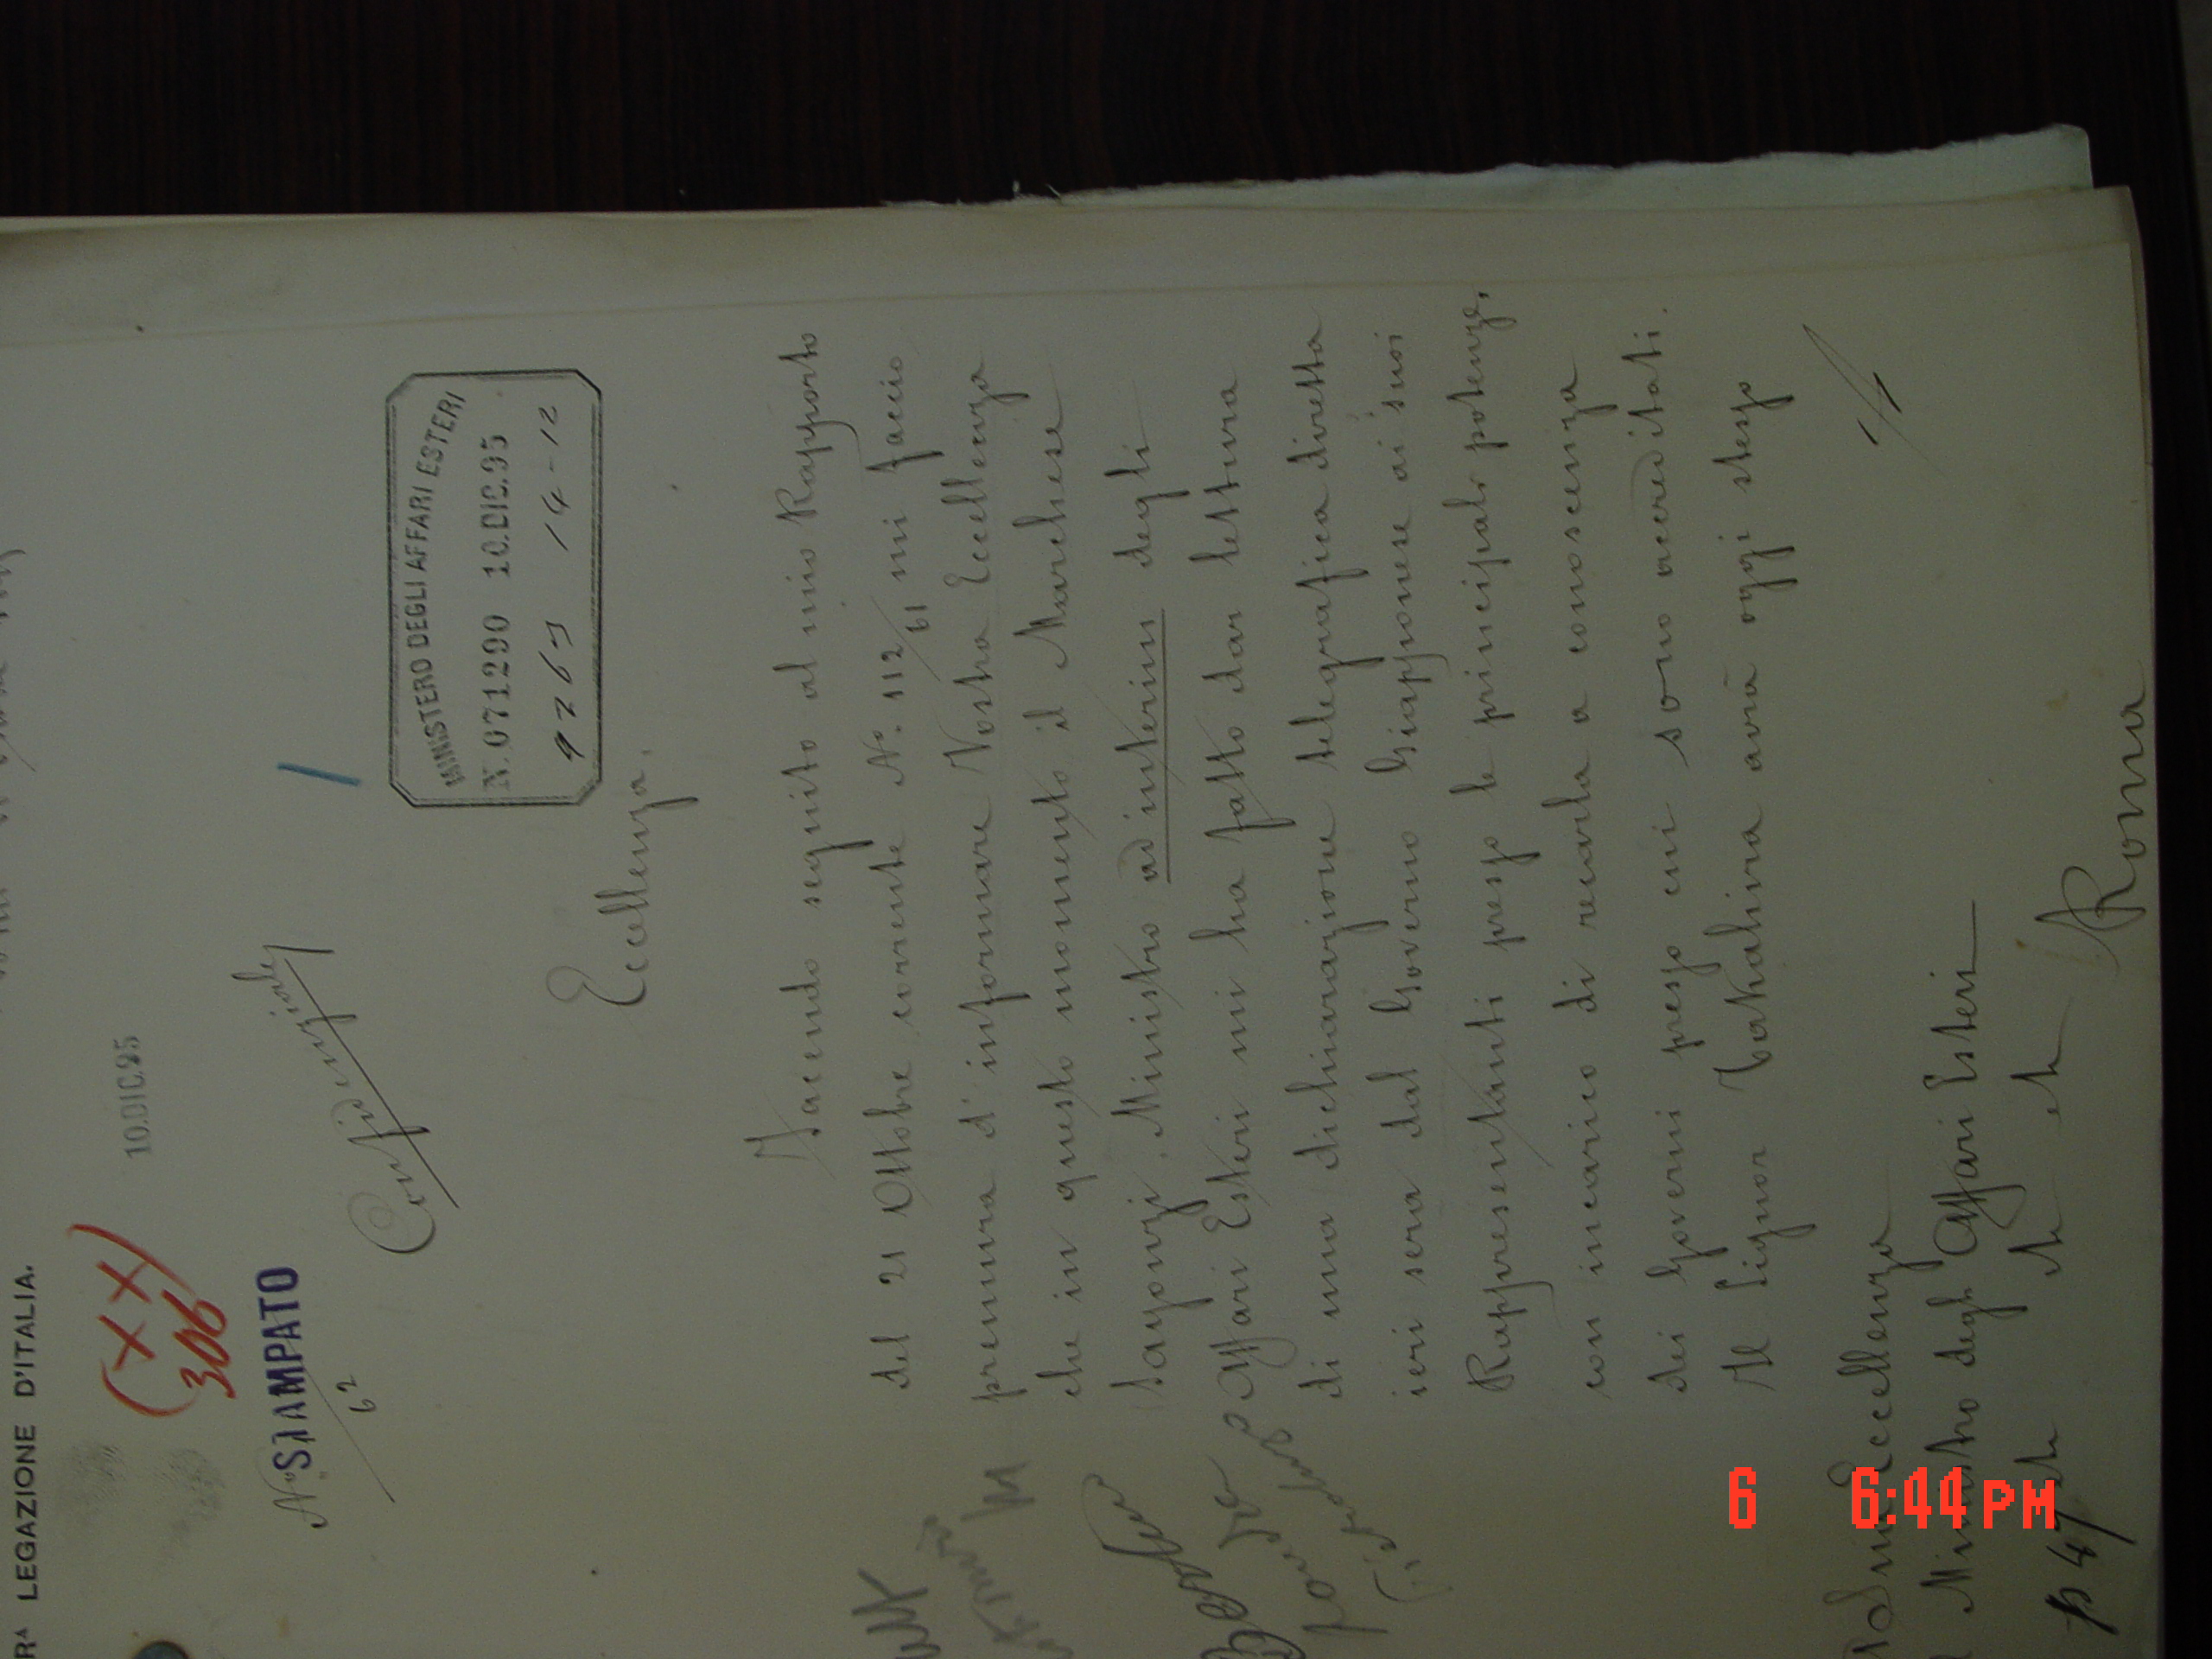 Rᴬ LEGAZIONE D'ITALIA.
10.DIC.95
(XX)
306
N° STAMPATO
62
Confidenziale
MINISTERO DEGLI AFFARI ESTERI
N.071290 10.DIC.95
14-12
Eccellenza,
Facendo seguito al mio Rapporto
del 21 Ottobre corrente N°. 112/61 mi faccio
premura d'informare Vostra Eccellenza
che in questo momento il Marchese
Sayonzi, Ministro ad interim degli
Affari Esteri mi ha fatto dar lettura
di una dichiarazione telegrafica diretta
ieri sera dal Governo Giapponese ai suoi
Rappresentanti presso le principali potenze,
con incarico di recarla a conoscenza
dei Governi presso cui sono accreditati.
Il Signor Takahira avrà oggi stesso
A Sua Eccellenza
Ministro degli Affari Esteri
Roma
6 6:44 PM